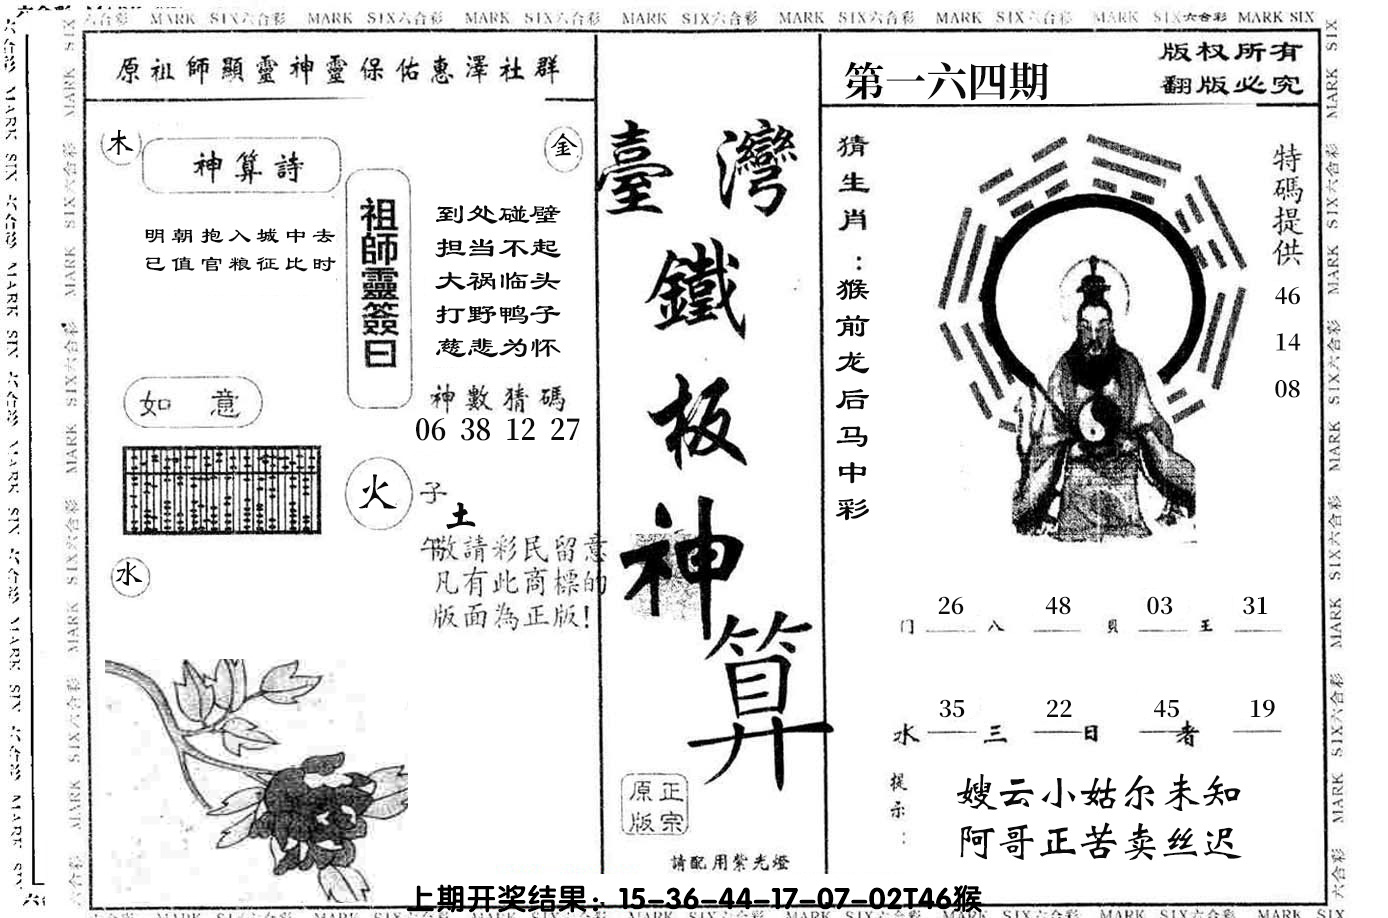 MARK SIX六合彩 MARK SIX六合彩 MARK SIX六合彩 MARK SIX六合彩 MARK SIX六合彩 MARK SIX六合彩 MARK SIX六合彩 MARK SIX
原祖師顯靈神靈保佑惠澤社群
木
神算詩
金
明朝抱入城中去
已值官粮征比时
祖師靈簽曰
到处碰壁
担当不起
大祸临头
打野鸭子
慈悲为怀
神數猜碼
06 38 12 27
如 意
火
子
土
午
敬請彩民留意
凡有此商標的
版面為正版!
水
臺灣
鐵
板
神
算
正宗
原版
請配用紫光燈
第一六四期
版权所有
翻版必究
猜生肖：猴前龙后马中彩
特碼提供
46
14
08
26 48 03 31
门 八 貝 王
35 22 45 19
水 三 日 者
提示：
嫂云小姑尔未知
阿哥正苦卖丝迟
上期开奖结果：15-36-44-17-07-02T46猴